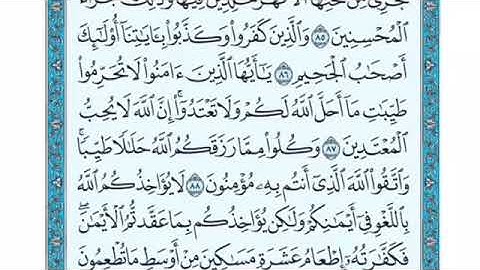 تَجْرِى مِن تَحْتِهَا ٱلْأَنْهَٰرُ خَٰلِدِينَ فِيهَا وَذَٰلِكَ جَزَآءُ
ٱلْمُحْسِنِينَ ٨٥ وَٱلَّذِينَ كَفَرُوا۟ وَكَذَّبُوا۟ بِـَٔايَٰتِنَآ أُو۟لَٰٓئِكَ
أَصْحَٰبُ ٱلْجَحِيمِ ٨٦ يَٰٓأَيُّهَا ٱلَّذِينَ ءَامَنُوا۟ لَا تُحَرِّمُوا۟
طَيِّبَٰتِ مَآ أَحَلَّ ٱللَّهُ لَكُمْ وَلَا تَعْتَدُوٓا۟ ۚ إِنَّ ٱللَّهَ لَا يُحِبُّ
ٱلْمُعْتَدِينَ ٨٧ وَكُلُوا۟ مِمَّا رَزَقَكُمُ ٱللَّهُ حَلَٰلًا طَيِّبًا ۚ
وَٱتَّقُوا۟ ٱللَّهَ ٱلَّذِىٓ أَنتُم بِهِۦ مُؤْمِنُونَ ٨٨ لَا يُؤَاخِذُكُمُ ٱللَّهُ
بِٱللَّغْوِ فِىٓ أَيْمَٰنِكُمْ وَلَٰكِن يُؤَاخِذُكُم بِمَا عَقَّدتُّمُ ٱلْأَيْمَٰنَ ۖ
فَكَفَّٰرَتُهُۥٓ إِطْعَامُ عَشَرَةِ مَسَٰكِينَ مِنْ أَوْسَطِ مَا تُطْعِمُونَ